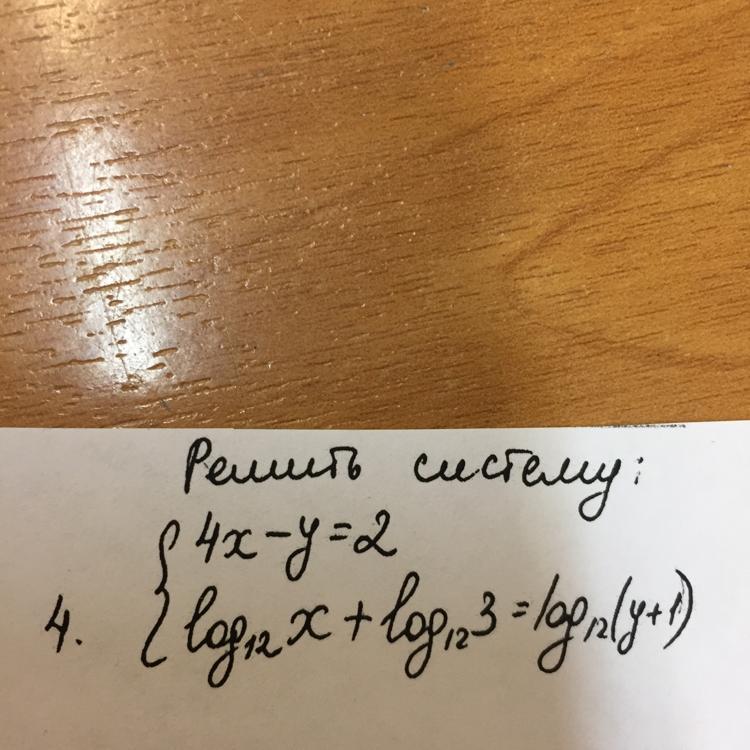 Решить систему:
4x - y = 2
4. log₁₂x + log₁₂3 = log₁₂(y+1)